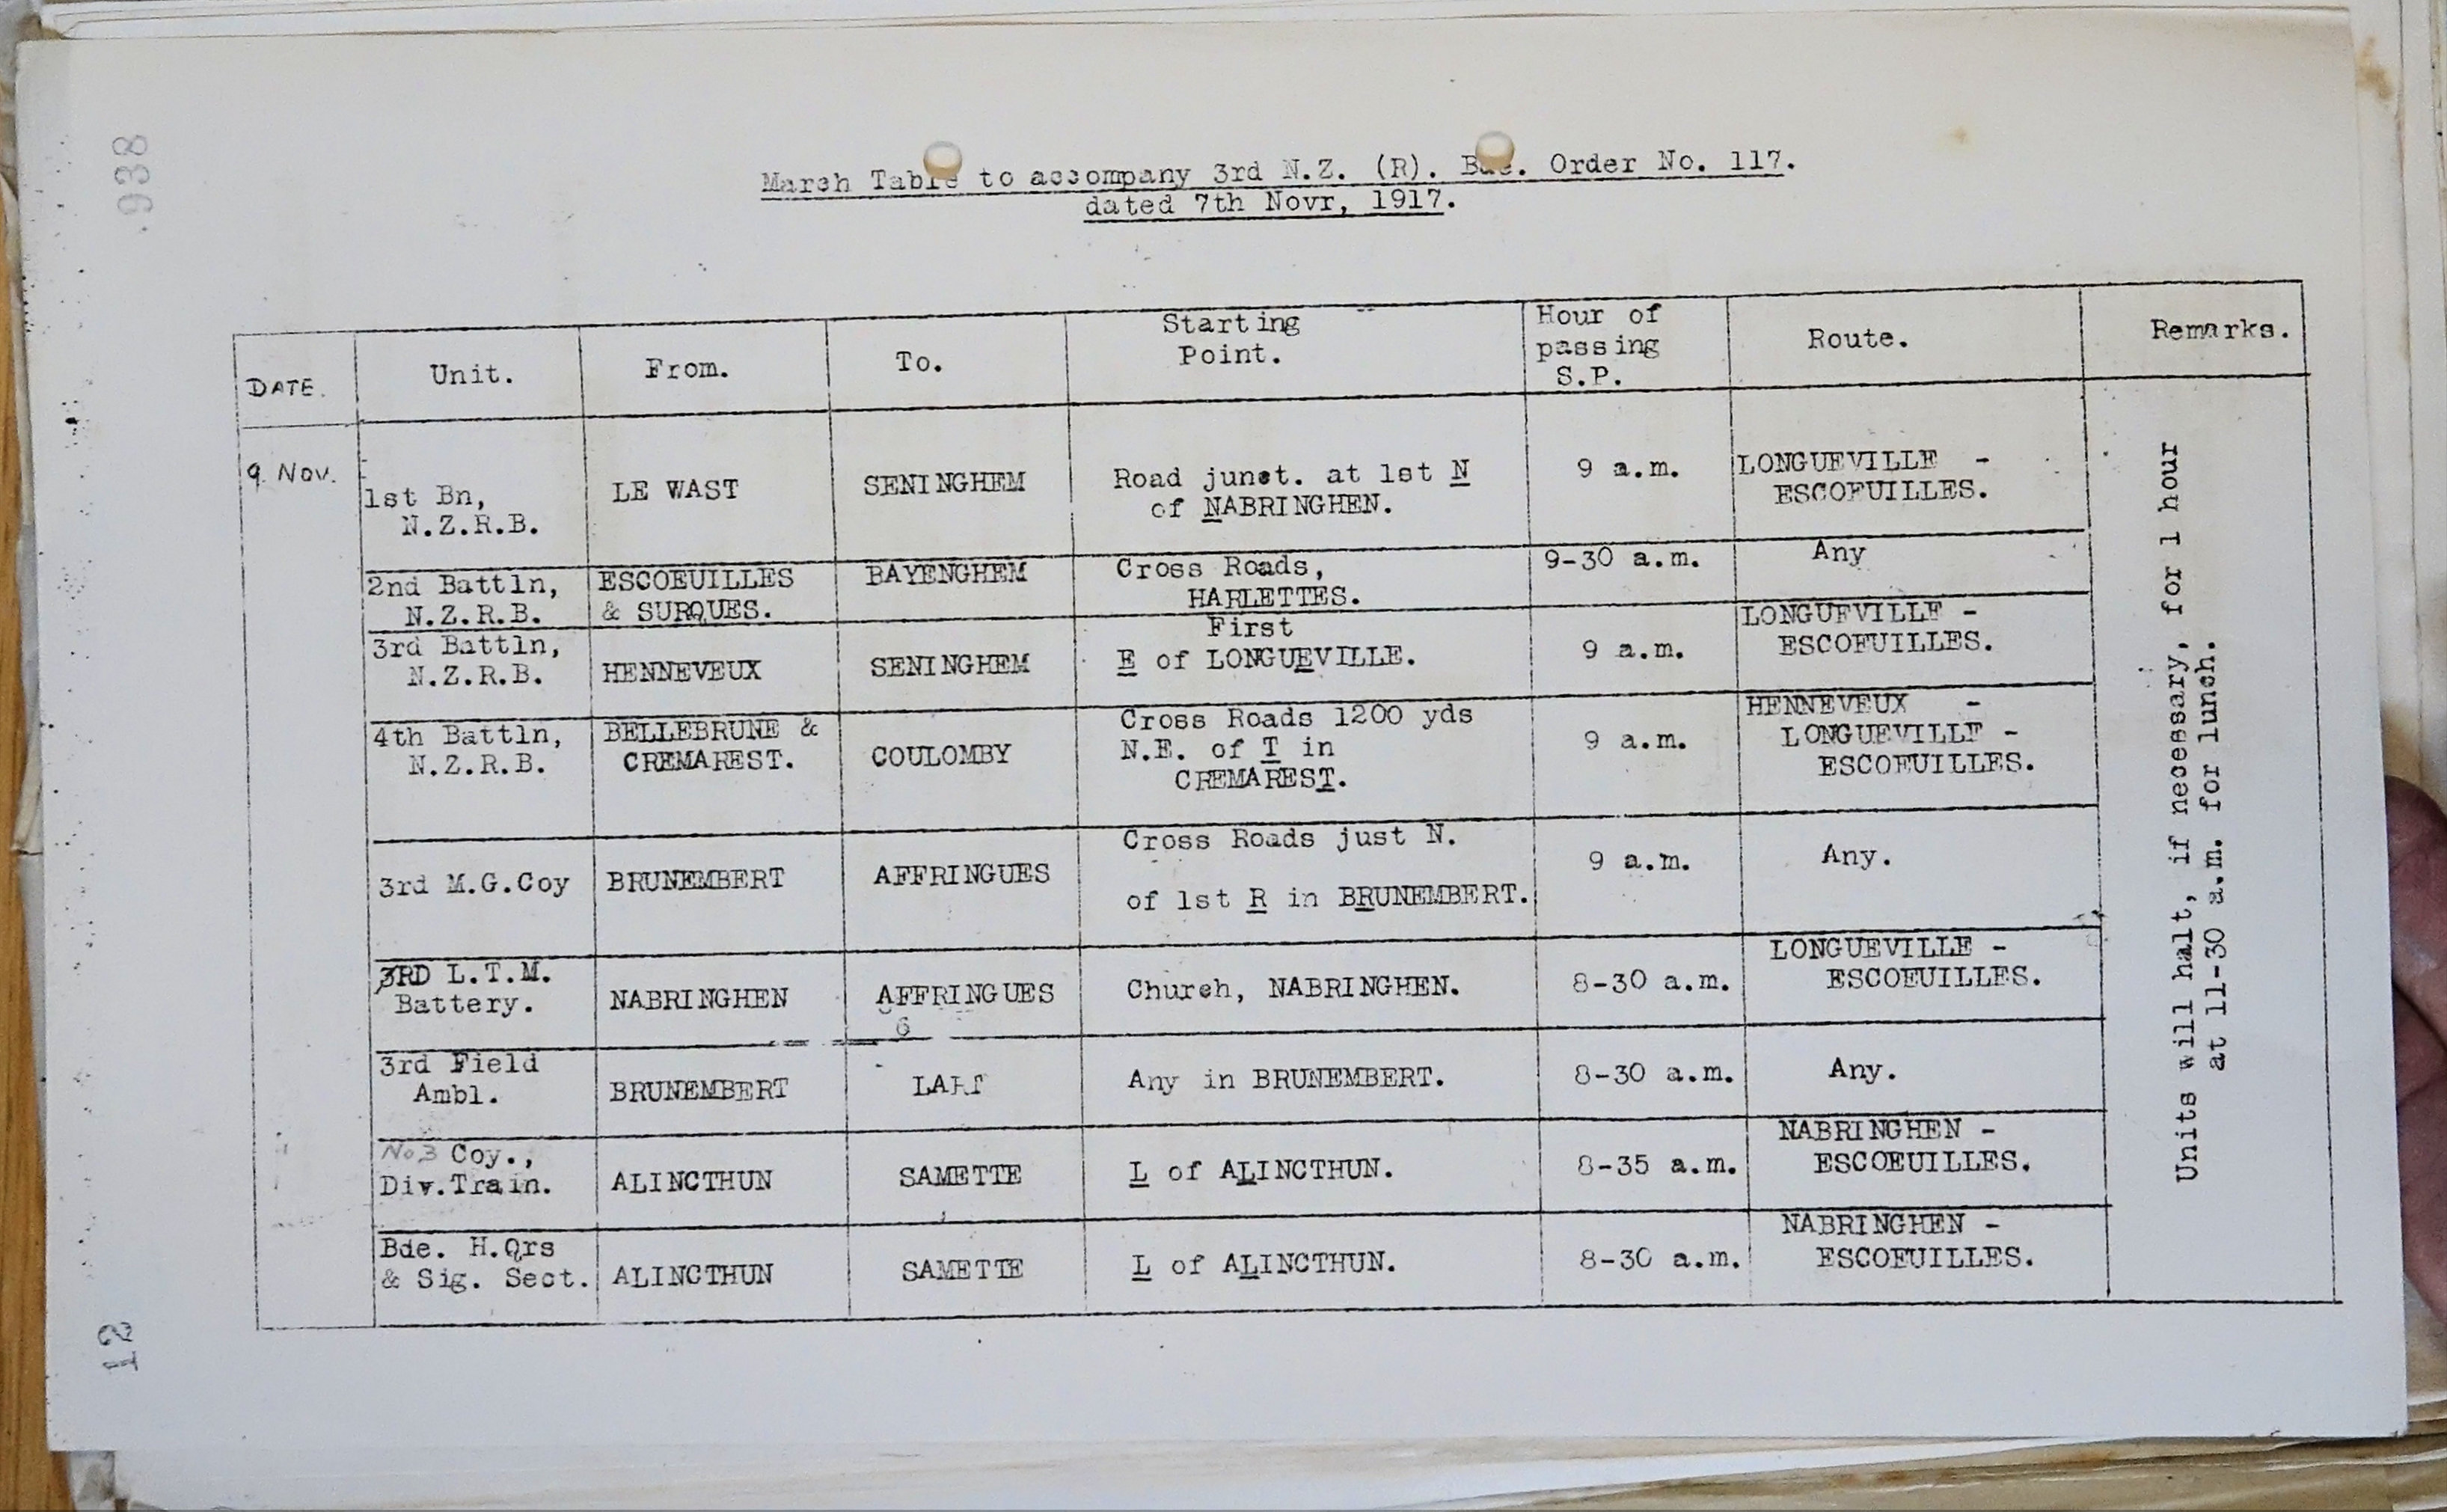 .938
March Table to accompany 3rd N.Z. (R). Bde. Order No. 117.
dated 7th Novr, 1917.
DATE.
Unit.
From.
To.
Starting
Point.
Hour of
passing
S.P.
Route.
Remarks.
9 Nov.
1st Bn,
N.Z.R.B.
LE WAST
SENINGHEM
Road junct. at 1st N
of NABRINGHEN.
9 a.m.
LONGUEVILLE -
ESCOEUILLES.
2nd Battln,
N.Z.R.B.
ESCOEUILLES
& SURQUES.
BAYENGHEM
Cross Roads,
HARLETTES.
9-30 a.m.
Any
3rd Battln,
N.Z.R.B.
HENNEVEUX
SENINGHEM
First
E of LONGUEVILLE.
9 a.m.
LONGUEVILLE -
ESCOEUILLES.
4th Battln,
N.Z.R.B.
BELLEBRUNE &
CREMAREST.
COULOMBY
Cross Roads 1200 yds
N.E. of T in
CREMAREST.
9 a.m.
HENNEVEUX -
LONGUEVILLE -
ESCOEUILLES.
3rd M.G.Coy
BRUNEMBERT
AFFRINGUES
Cross Roads just N.
of 1st R in BRUNEMBERT.
9 a.m.
Any.
3RD L.T.M.
Battery.
NABRINGHEN
AFFRINGUES
Church, NABRINGHEN.
8-30 a.m.
LONGUEVILLE -
ESCOEUILLES.
3rd Field
Ambl.
BRUNEMBERT
Any in BRUNEMBERT.
8-30 a.m.
Any.
No 3 Coy.,
Div.Train.
ALINCTHUN
SAMETTE
L of ALINCTHUN.
8-35 a.m.
NABRINGHEN -
ESCOEUILLES.
Bde. H.Qrs
& Sig. Sect.
ALINCTHUN
SAMETTE
L of ALINCTHUN.
8-30 a.m.
NABRINGHEN -
ESCOEUILLES.
Units will halt, if necessary, for 1 hour
at 11-30 a.m. for lunch.
12